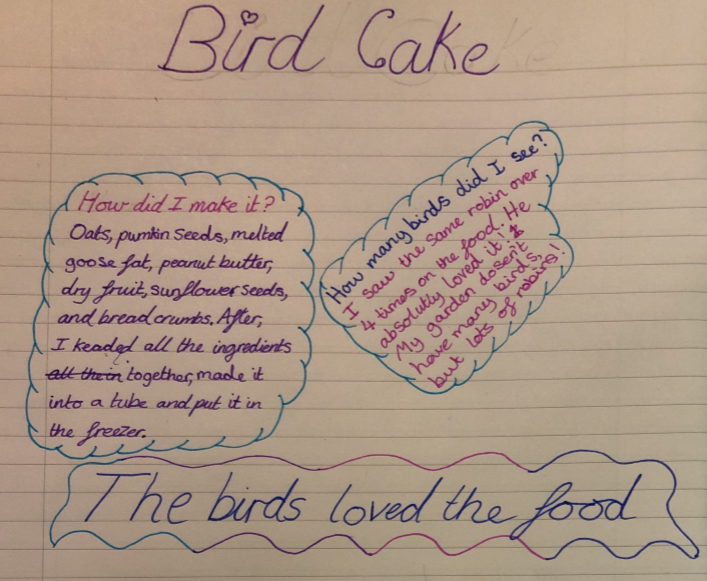 Bird Cake
How did I make it?
Oats, pumkin seeds, melted
goose fat, peanut butter,
dry fruit, sunflower seeds,
and bread crumbs. After,
I keaded all the ingredients
all the in together, made it
into a tube and put it in
the freezer.
How many birds did I see?
I saw the same robin over
4 times on the food. He
absolutly loved it! I
My garden dosen't
have many birds,
but lots of robins!
The birds loved the food